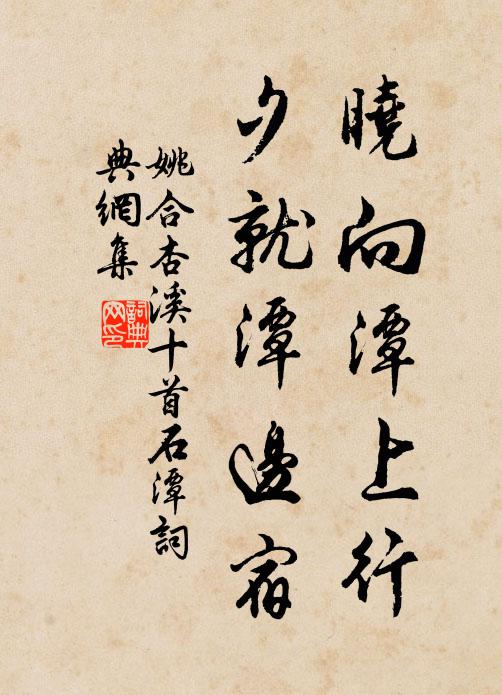 曉向潭上行
夕就潭邊宿
姚合杏溪十首石潭詞
典網集
詞典
网印